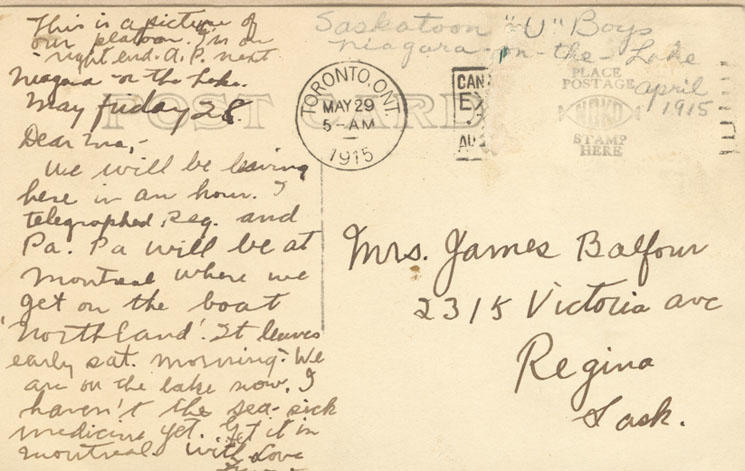 This is a picture of
our platoon. I'm on
right end. A.P. next
Niagara on the Lake.
May friday 28.
Dear Ma,-
We will be leaving
here in an hour. I
telegraphed Reg. and
Pa. Pa will be at
Montreal where we
get on the boat
'Northland'. It leaves
early sat. morning. We
are on the lake now. I
haven't the sea-sick
medicine yet. Get it in
Montreal. With Love
Saskatoon "U" Boys
Niagara-on-the-Lake
April
1915
POST CARD
TORONTO, ONT.
MAY 29
5-AM
1915
CAN
EX
AU
PLACE
POSTAGE
NOKO
STAMP
HERE
Mrs. James Balfour
2315 Victoria ave
Regina
Sask.